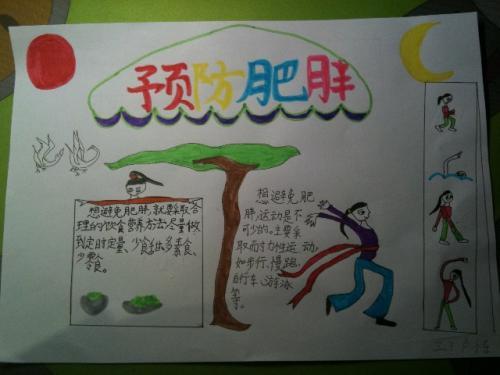 预防肥胖
想避免肥胖,就要采取合
理的饮食营养方法,尽量做
到定时定量、少食甜食多素食、
少零食。
想避免肥
胖,运动是不
可少的。主要采
取耐力性运动,
如步行、慢跑、
自行车、游泳
等。